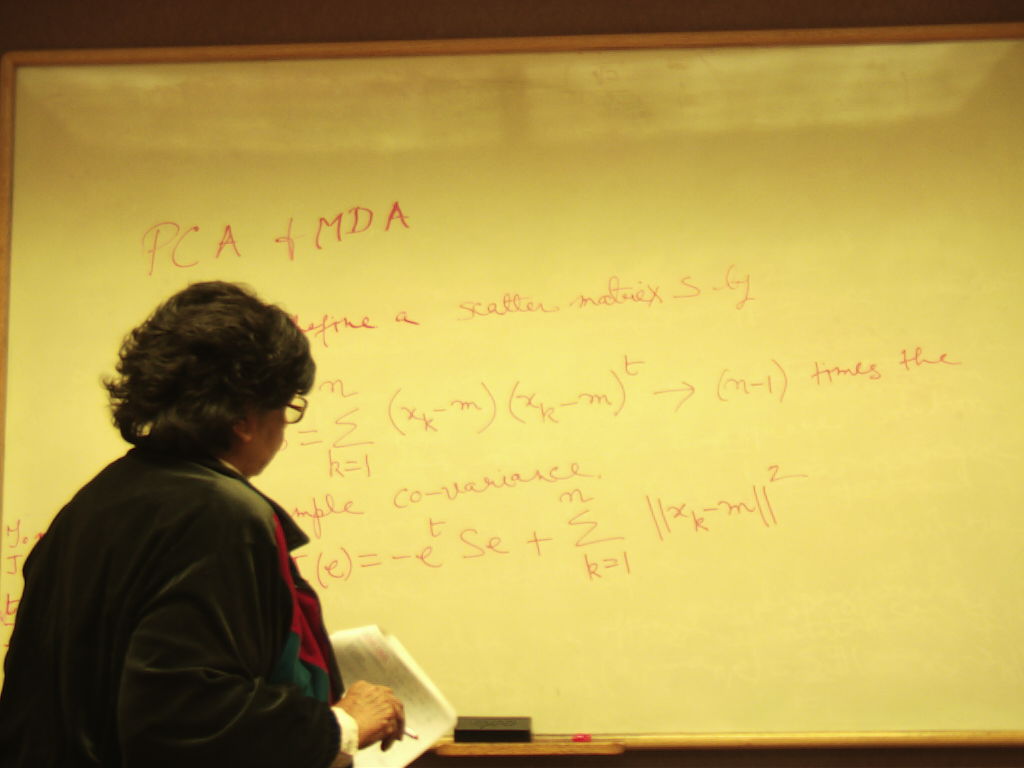 PCA & MDA
define a scatter matrix S by
S = n Σ k=1 (x_k - m)(x_k - m)^t → (n-1) times the
sample co-variance.
J(e) = -e^t Se + n Σ k=1 ||x_k - m||^2